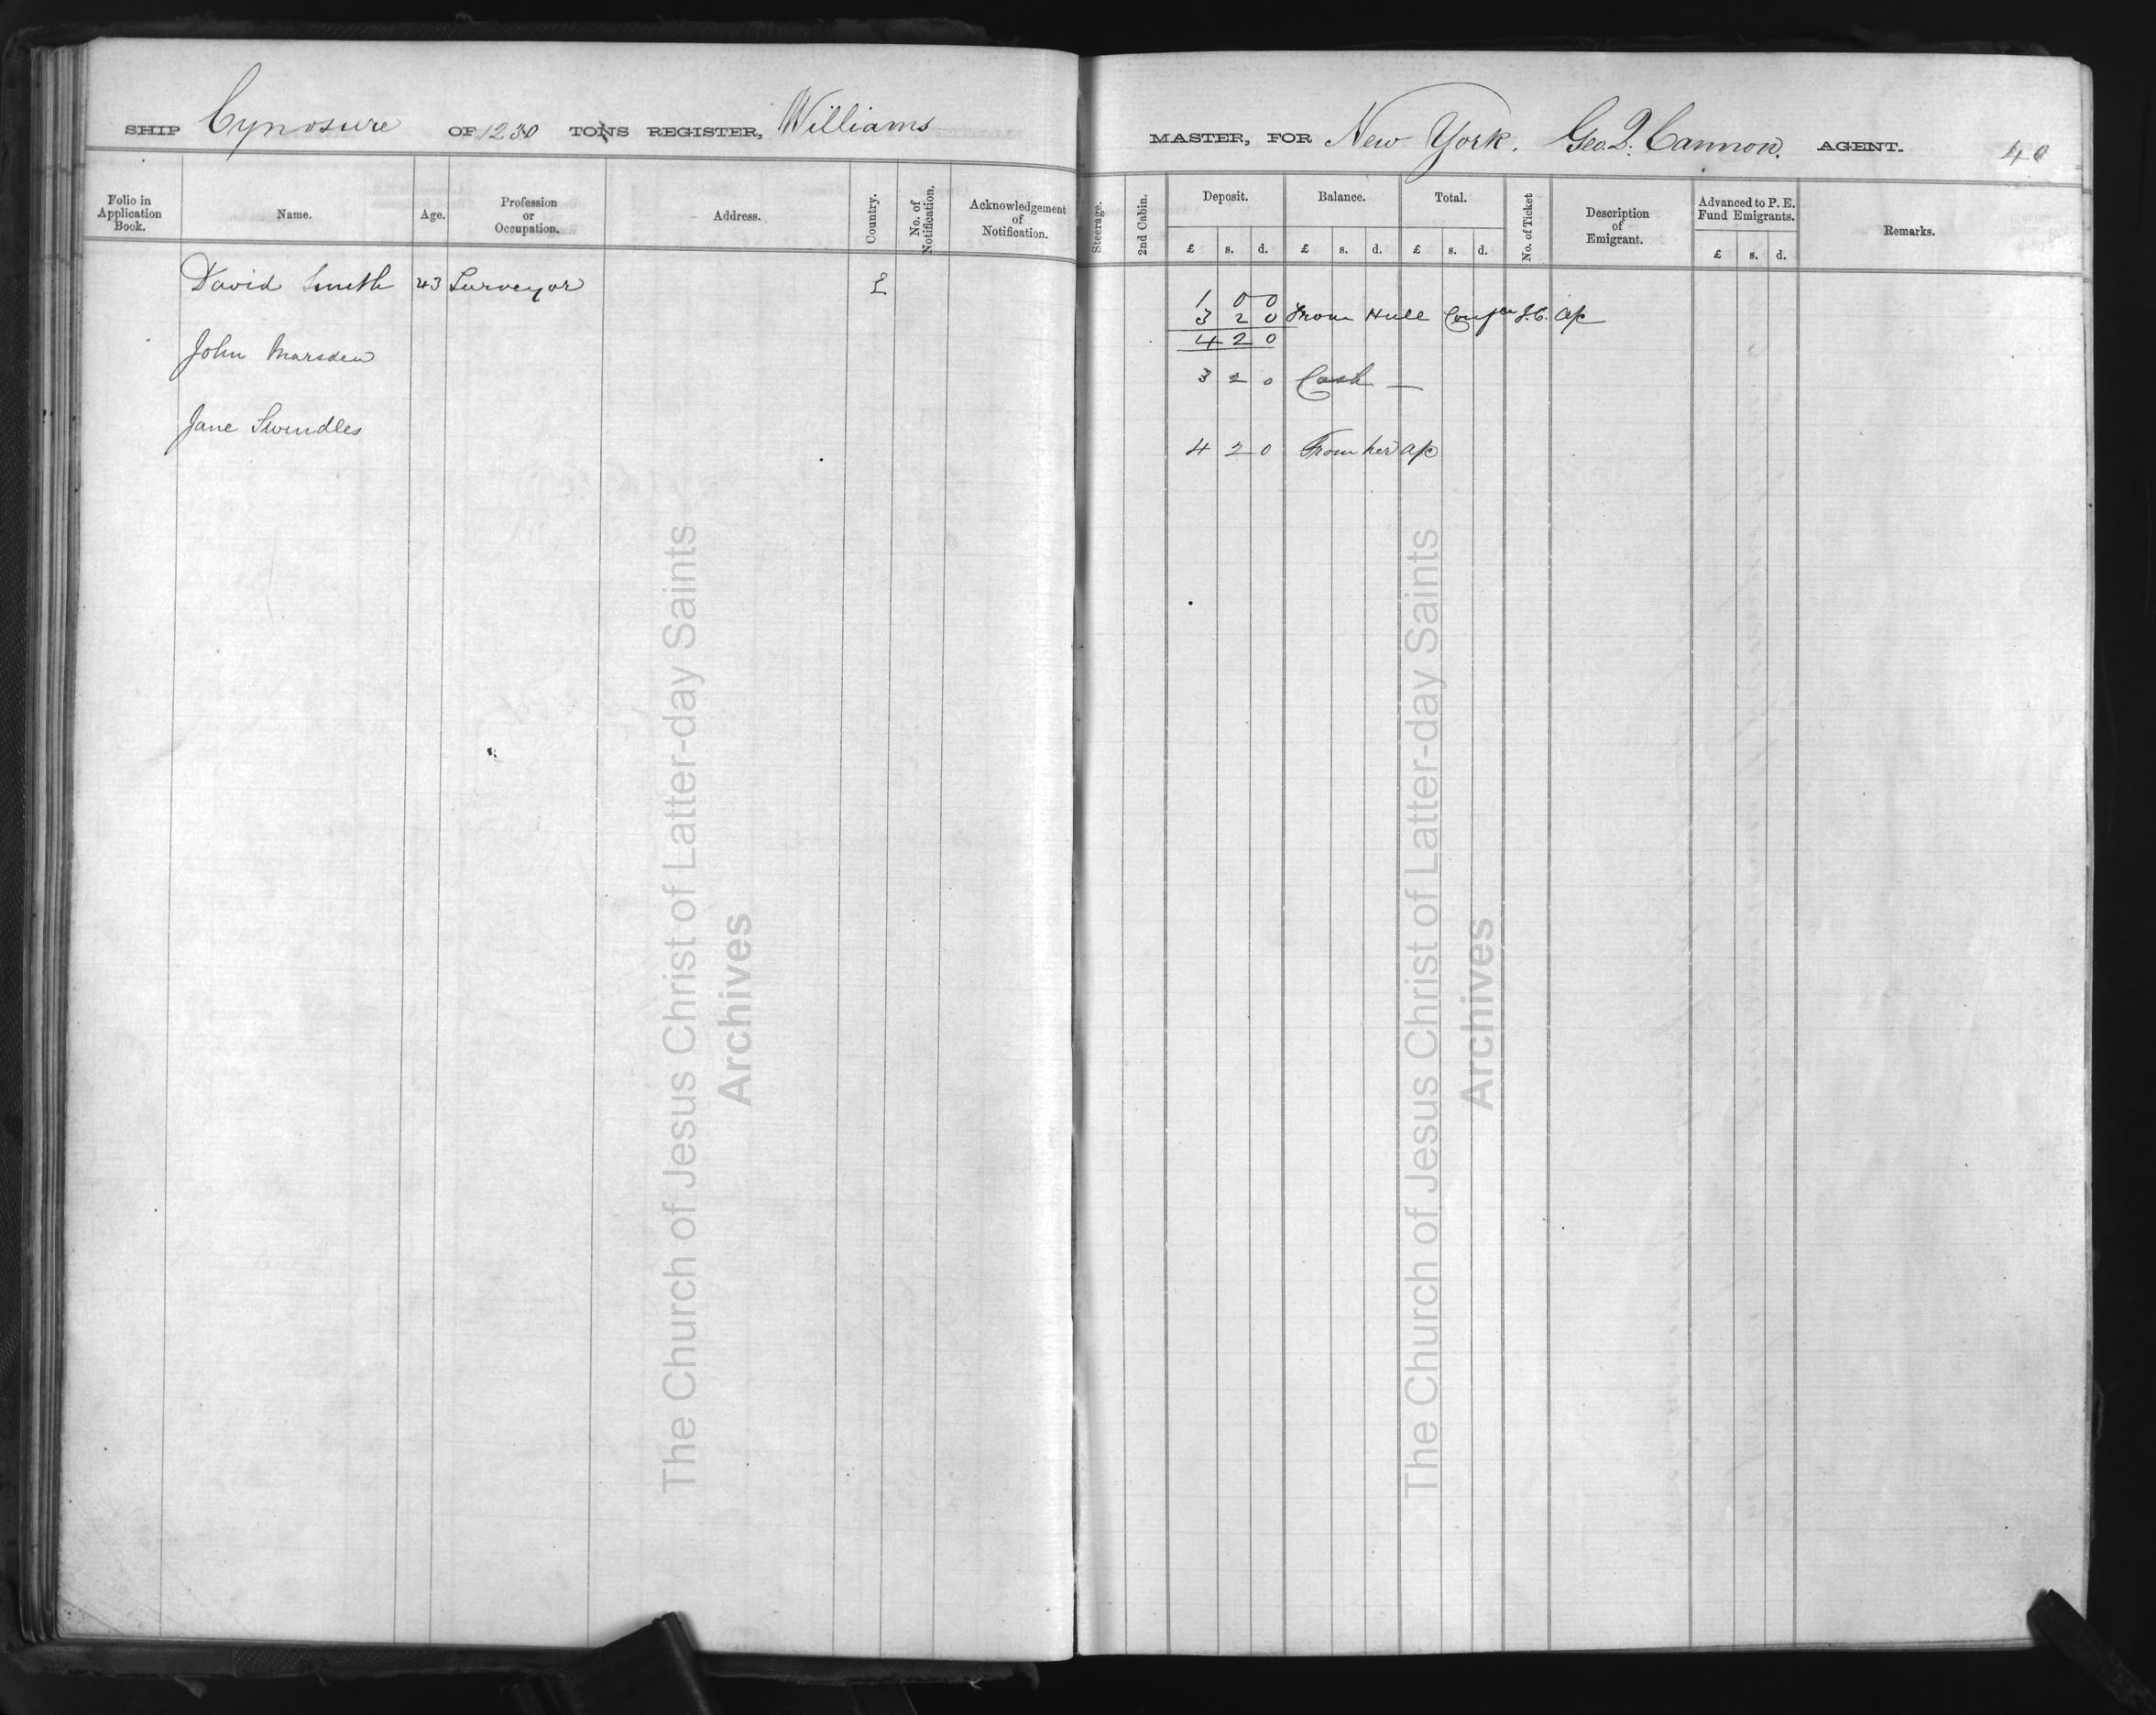 SHIP Cynosure OF 1230 TONS REGISTER, Williams MASTER, FOR New York. Geo. Q. Cannon. AGENT. 40
Folio in Application Book. Name. Age. Profession or Occupation. Address. Country. No. of Notification. Acknowledgement of Notification. Steerage. 2nd Cabin. Deposit. Balance. Total. No. of Ticket Description of Emigrant. Advanced to P. E. Fund Emigrants. Remarks.
£ s. d. £ s. d. £ s. d. £ s. d.
David Smith 43 Surveyor E
1 0 0
3 2 0 From Hull a/c
4 2 0
John Marsden
3 2 0 Cash —
Jane Swindles
4 2 0 From her a/c
The Church of Jesus Christ of Latter-day Saints
Archives
The Church of Jesus Christ of Latter-day Saints
Archives